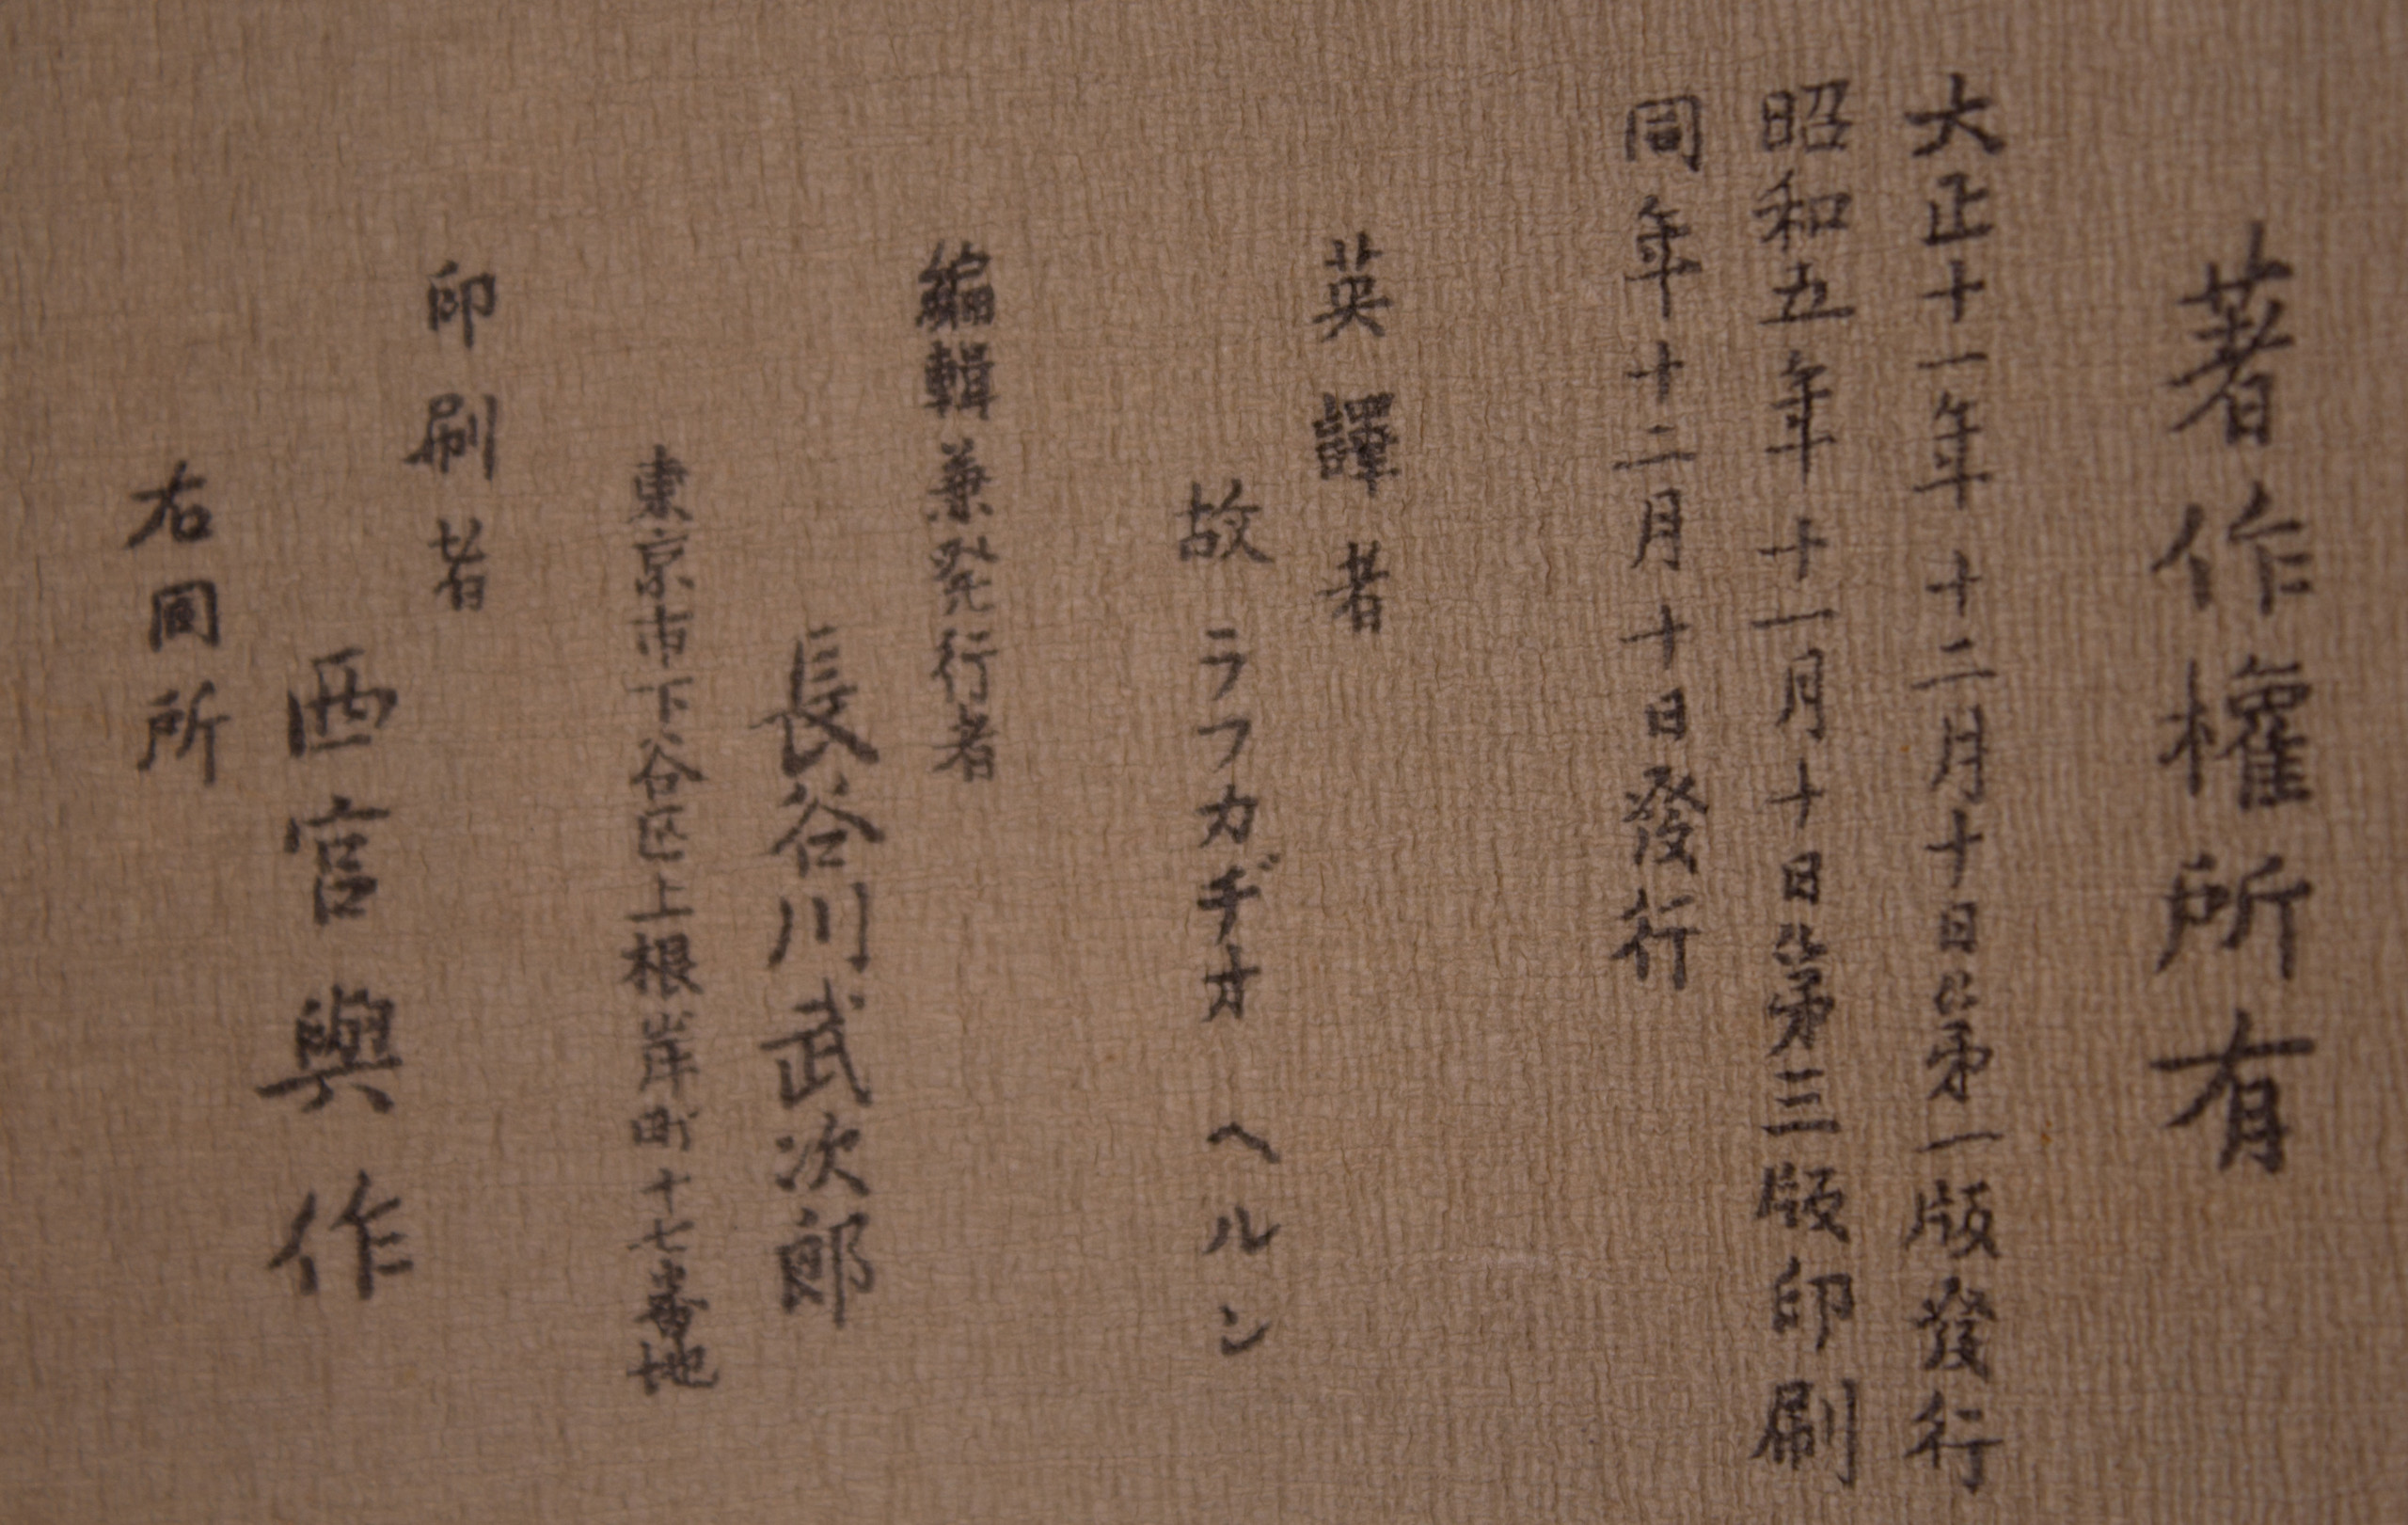 著作權所有
大正十一年十二月十日第一版發行
昭和五年十一月十日第三版印刷
同年十二月十日發行
英譯者
故ラフカヂオ ヘルン
編輯兼発行者
長谷川武次郎
東京市下谷区上根岸町十七番地
印刷者
西宮與作
右同所